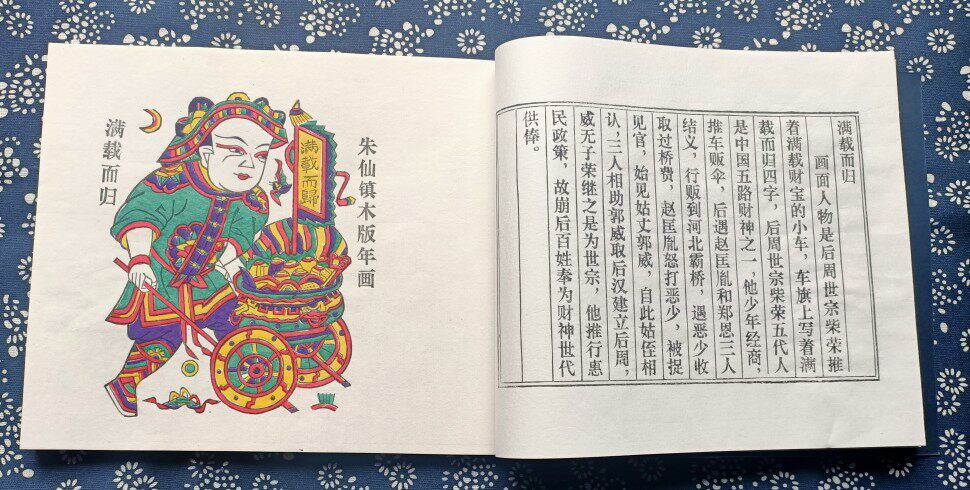 满载而归
满载而歸
朱仙镇木版年画
满载而归
画面人物是后周世宗柴荣推
着满载财宝的小车，车旗上写着满
载而归四字，后周世宗柴荣五代人
是中国五路财神之一，他少年经商，
推车贩伞，后遇赵匡胤和郑恩三人
结义，行贩到河北霸桥，遇恶少收
取过桥费，赵匡胤怒打恶少，被捉
见官，始见姑丈郭威，自此姑侄相
认，三人相助郭威取后汉建立后周，
威无子荣继之是为世宗，他推行惠
民政策，故崩后百姓奉为财神世代
供俸。